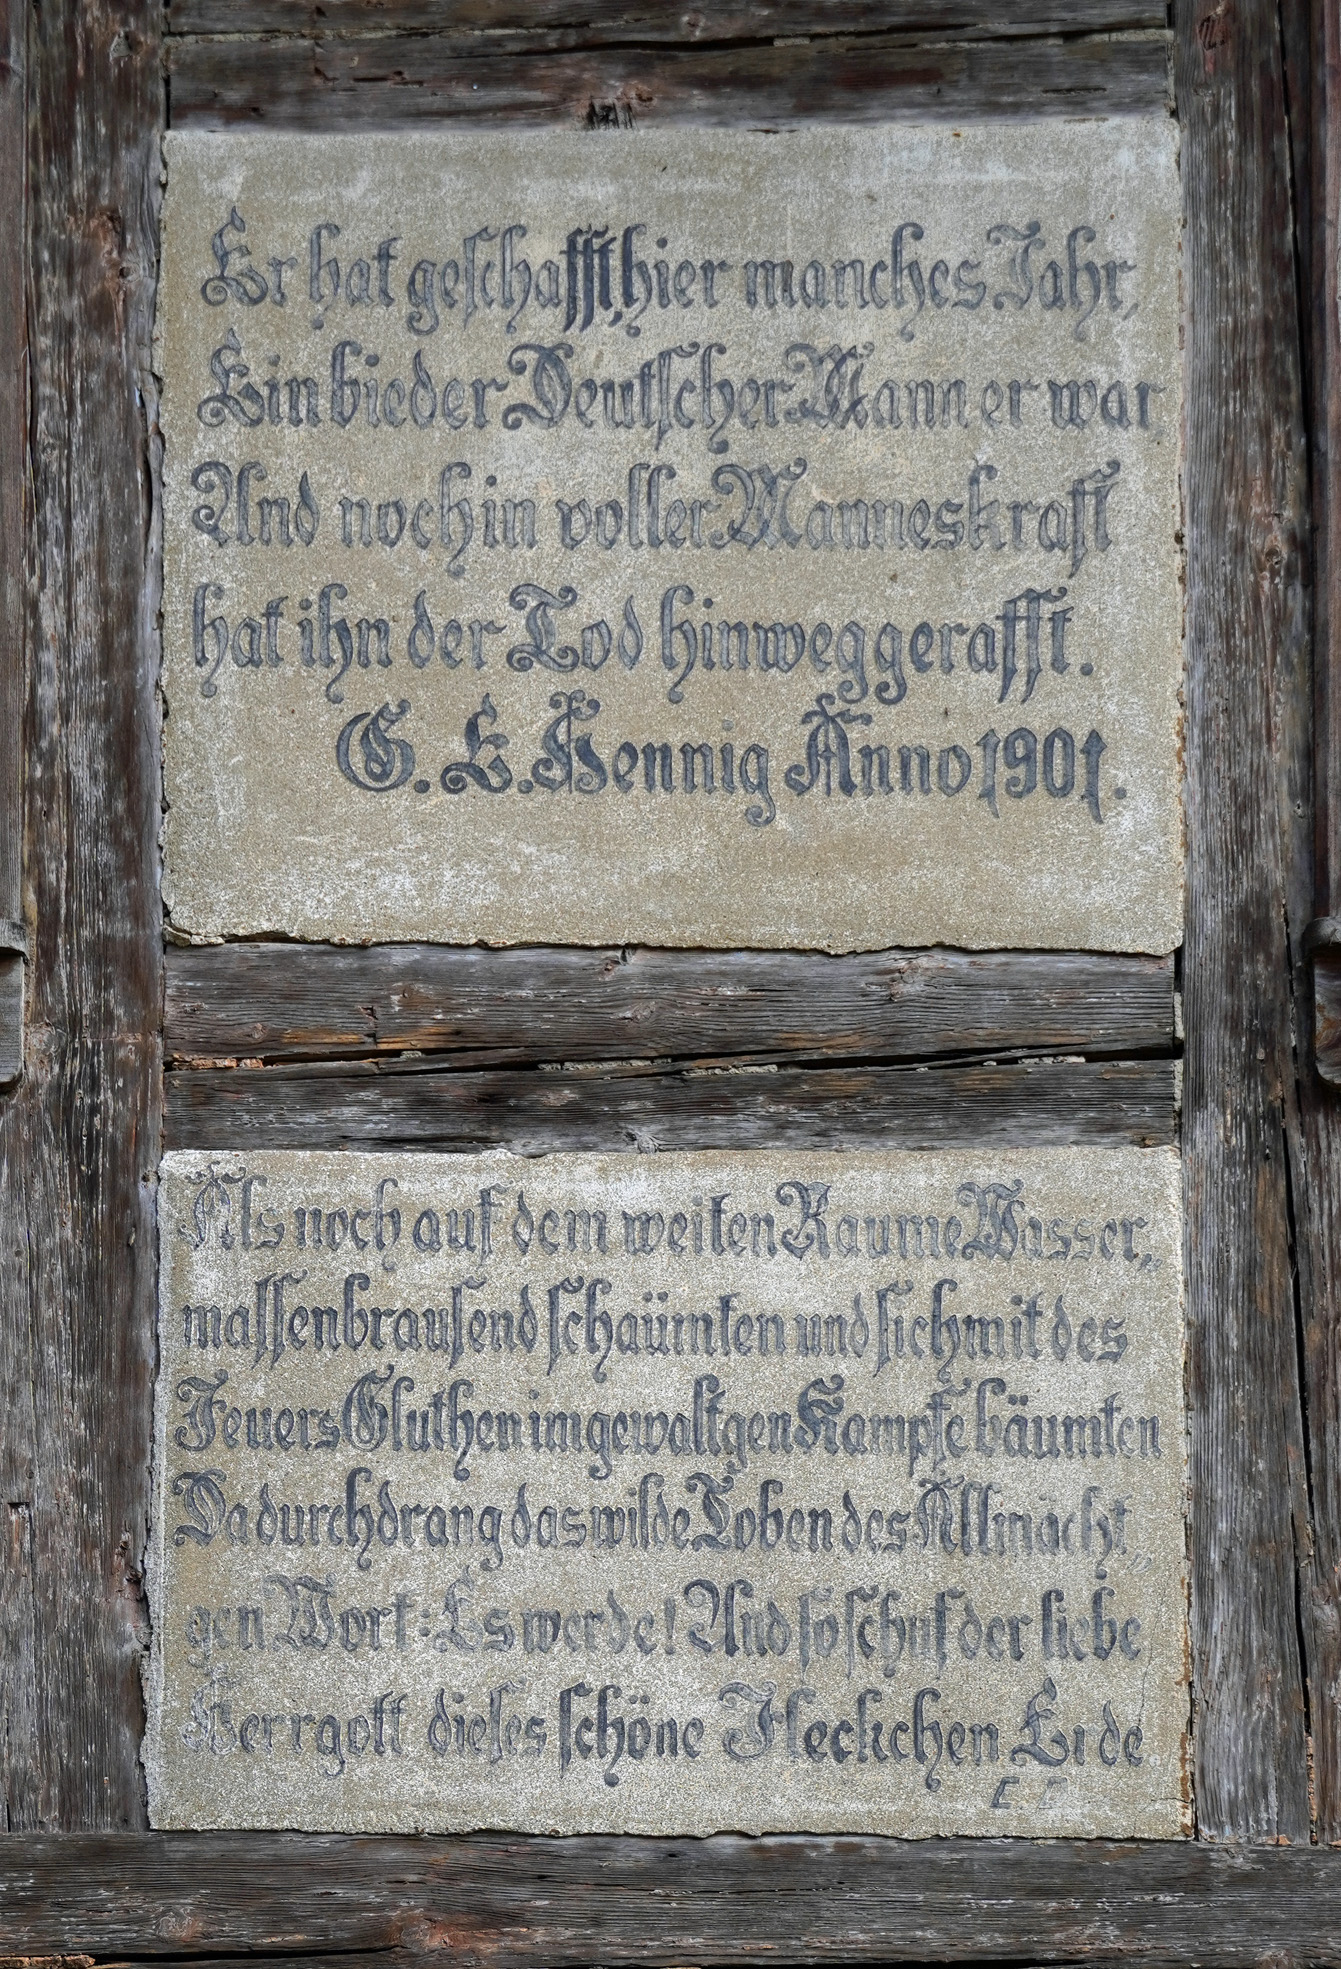 Er hat geschafft, hier manches Jahr,
Ein bieder Deutscher Mann er war
Und noch in voller Manneskraft
hat ihn der Tod hinweggerafft.
G. E. Hennig Anno 1901.
Als noch auf dem weiten Raume Wasser„
massenbrausend schaümten und sich mit des
Feuers Gluthen im gewaltgen Kampfe bäumten
Da durchdrang das wilde Toben des Allmächt„
gen Wort: Es werde! Und so schuf der liebe
Herrgott dieses schöne Fleckchen Erde